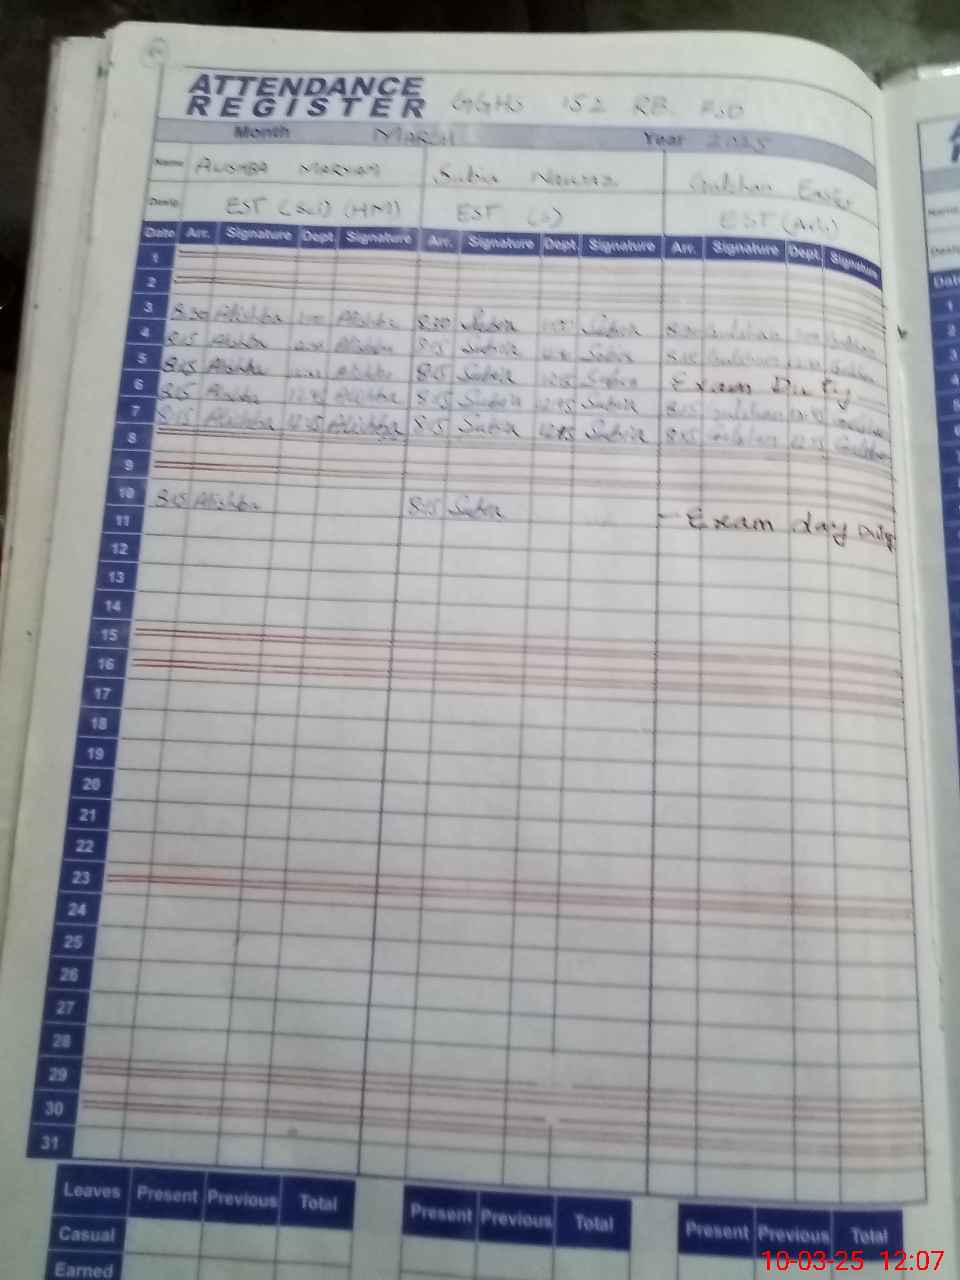 ATTENDANCE
REGISTER GGHS 152 RB. FSD
Month March Year 2025
Name Alishba Maryam Subia Nawaz Gulshan
Desig. EST (Sci) (HM) EST (S) EST
Date Arr. Signature Dept. Signature Arr. Signature Dept. Signature Arr. Signature Dept. Signature
1
2
3 8:30 Alishba Alishba 8:30 Subia Subia
4 8:15 Alishba Alishba 8:15 Subia Subia 8:15 Gulshan
5 8:15 Alishba Alishba 8:15 Subia Subia Exam Duty
6 8:15 Alishba 12:45 Alishba 8:15 Subia 12:45 Subia 8:15 Gulshan
7 8:15 Alishba 12:45 Alishba 8:15 Subia 12:45 Subia 8:15 Gulshan 12:45 Gulshan
8
9
10 8:15 Alishba 8:15 Subia Exam day Duty
11
12
13
14
15
16
17
18
19
20
21
22
23
24
25
26
27
28
29
30
31
Leaves Present Previous Total Present Previous Total Present Previous Total
Casual
Earned
10-03-25 12:07